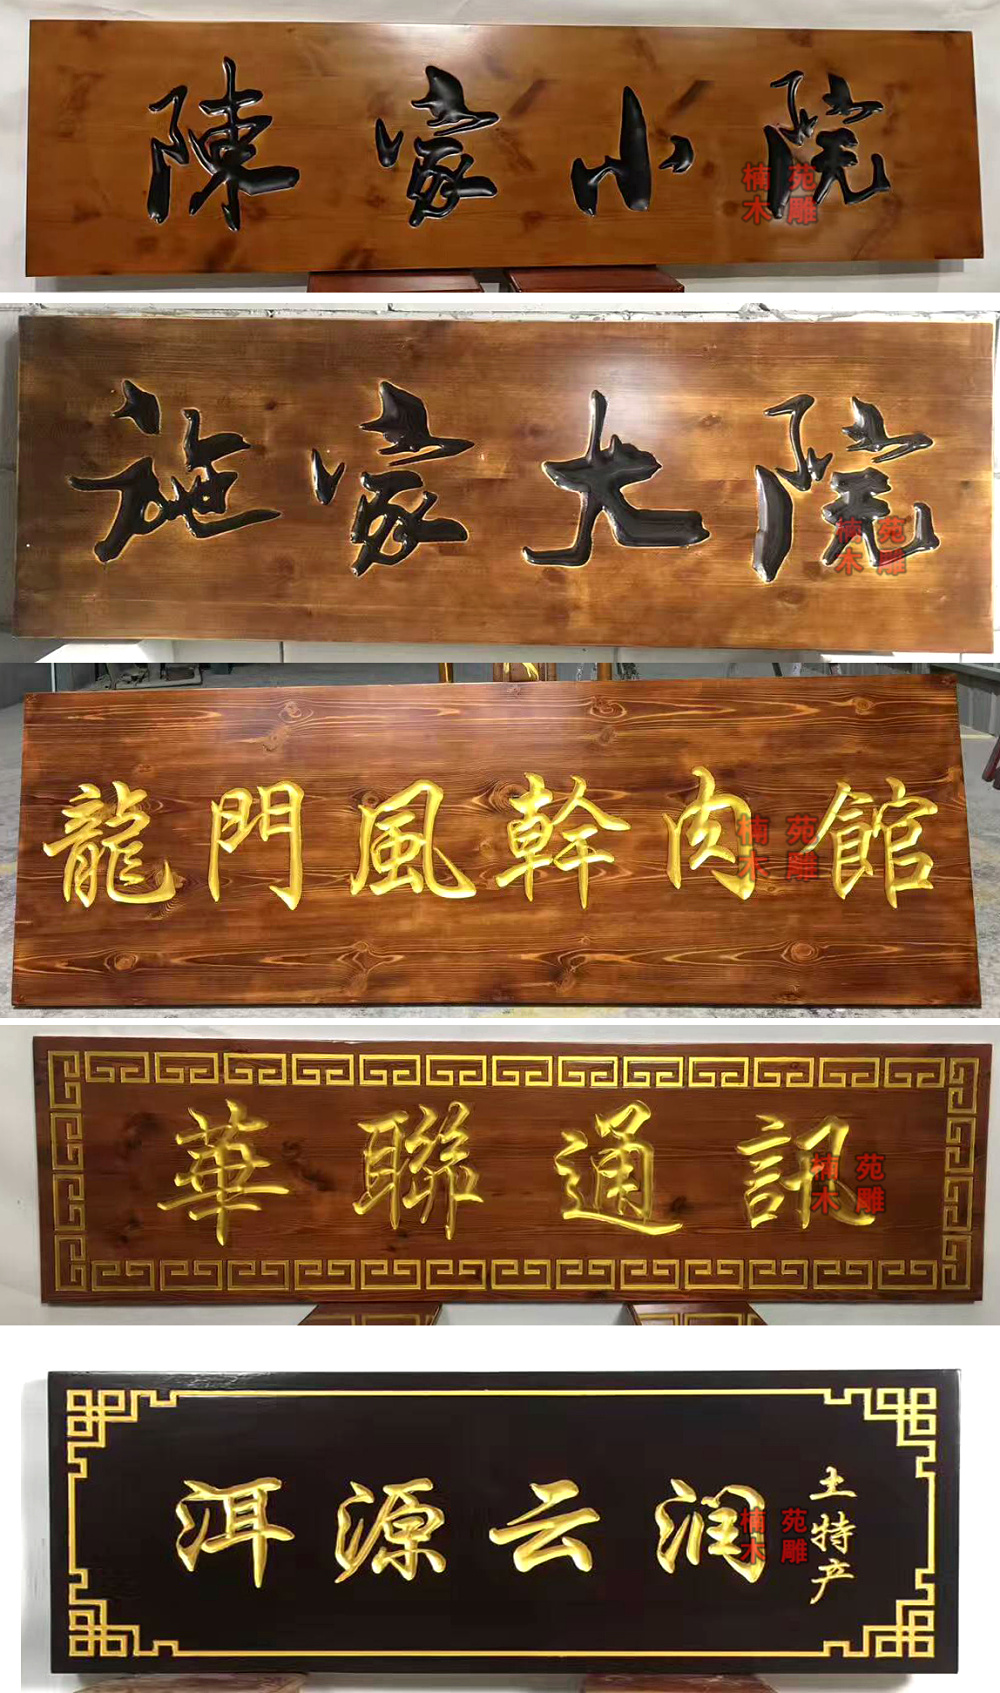 陳家小院
楠苑
木雕
施家大院
楠苑
木雕
龍門風幹肉館
楠苑
木雕
華聯通訊
楠苑
木雕
洱源云润
土特产
楠苑
木雕